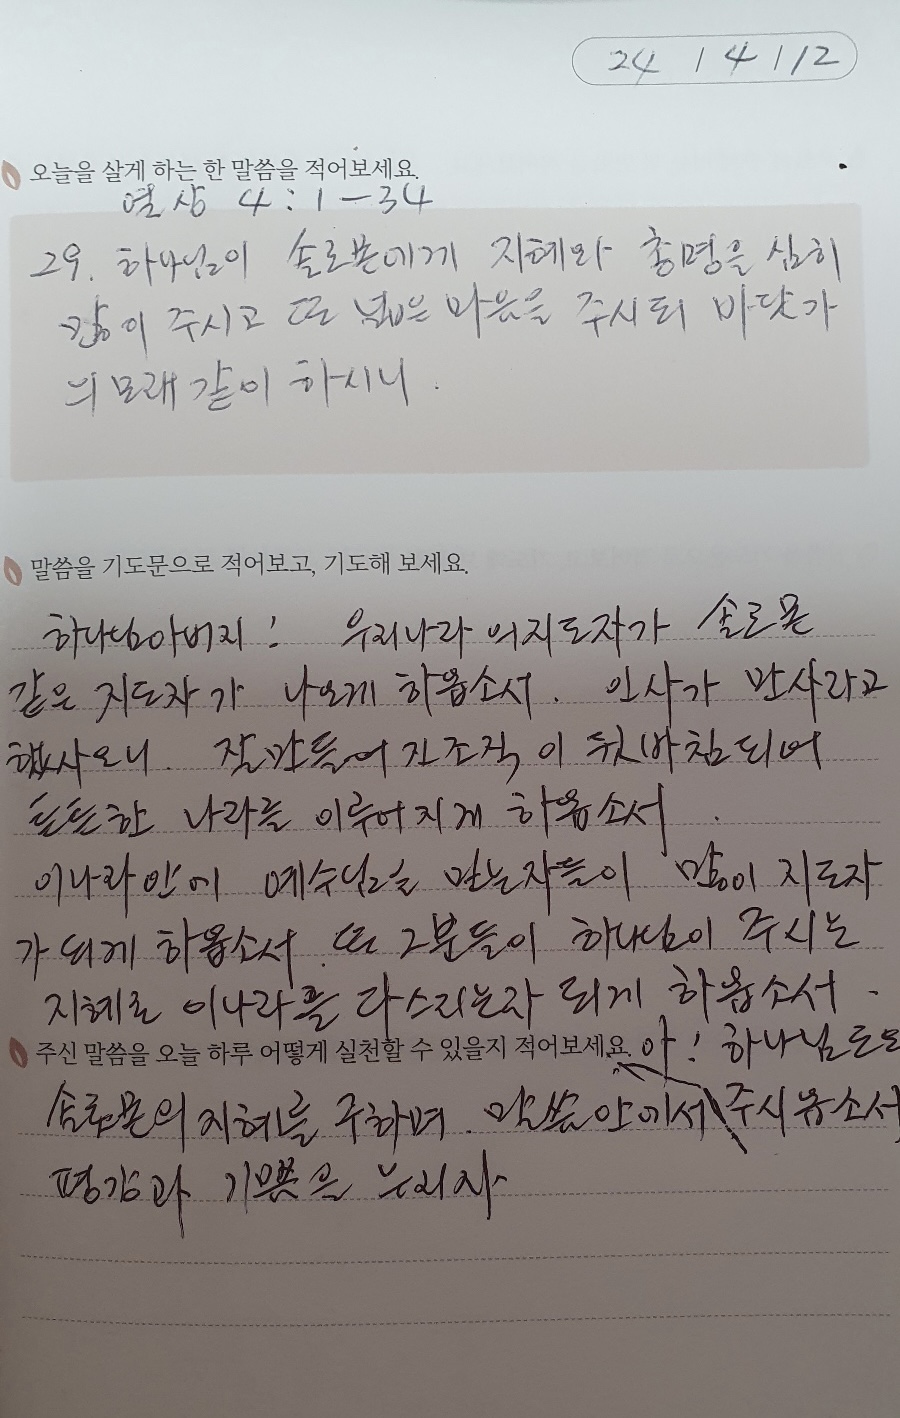 24 / 4 / 12
오늘을 살게 하는 한 말씀을 적어보세요.
열상 4 : 1 - 34
29. 하나님이 솔로몬에게 지혜와 총명을 심히
많이 주시고 또 넓은 마음을 주시되 바닷가
의 모래 같이 하시니.
말씀을 기도문으로 적어보고, 기도해 보세요.
하나님아버지! 우리나라의지도자가 솔로몬
같은 지도자가 나오게 하옵소서. 인사가 만사라고
했사오니. 잘만들어진조직이 뒷바침되어
튼튼한 나라를 이루어지게 하옵소서.
이나라안에 예수님을 믿는자들이 많이 지도자
가 되게 하옵소서. 또 그분들이 하나님이 주시는
지혜로 이나라를 다스리는자 되게 하옵소서.
주신 말씀을 오늘 하루 어떻게 실천할 수 있을지 적어보세요. 아! 하나님 도와
솔로몬의 지혜를 구하며. 말씀안에서 주시옵소서
평강과 기쁨을 누리자